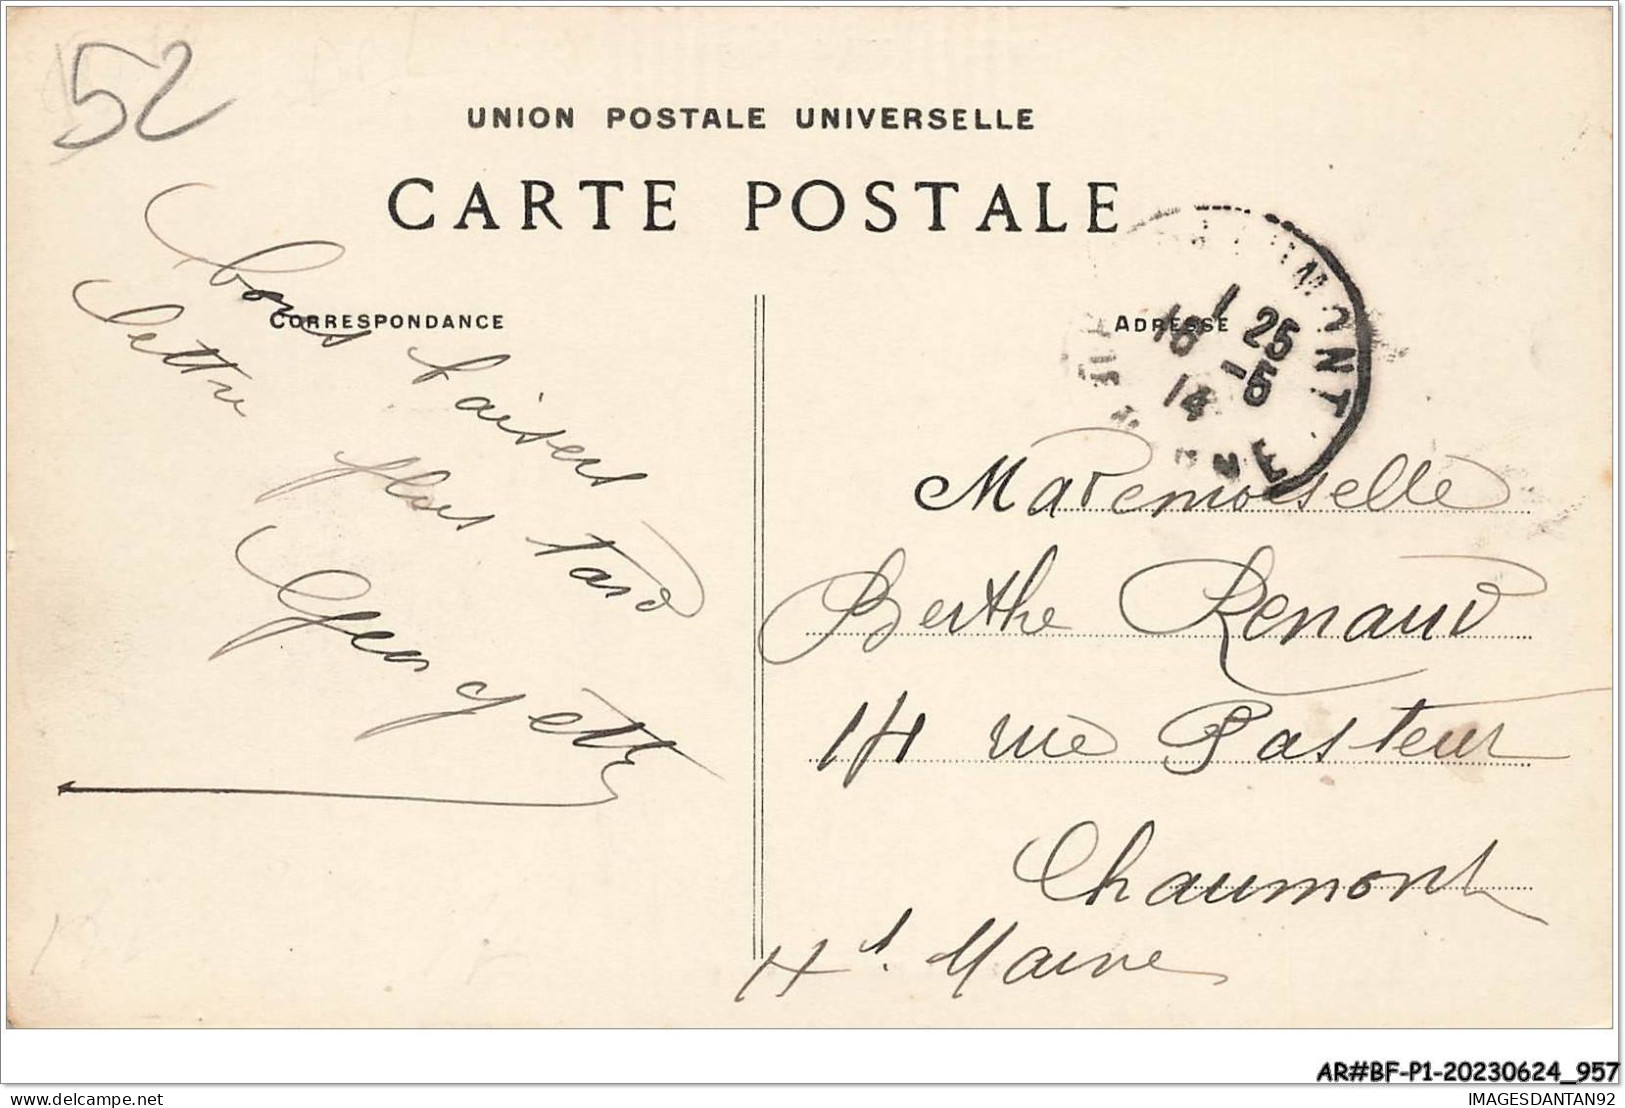 52
UNION POSTALE UNIVERSELLE
CARTE POSTALE
CORRESPONDANCE
bons baisers
lettre plus tard
Georgette
ADRESSE
1 25
16 -5
14
Mademoiselle
Berthe Renaud
14 rue Pasteur
Chaumont
Hte Marne
AR#BF-P1-20230624_957
delcampe.net
IMAGESDANTAN92